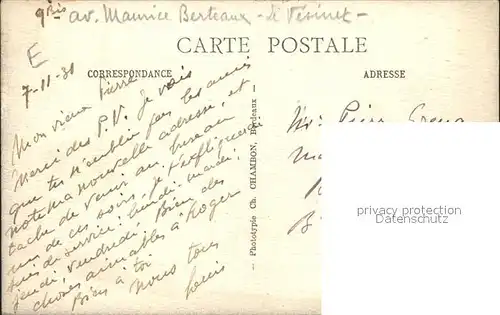 9bis av. Maurice Berteaux - Le Vésinet -
CARTE POSTALE
CORRESPONDANCE
ADRESSE
E
7-11-31
Mon vieux Pierre
Merci des P.V. Je vois
que tu n'oublies pas les amis
note ma nouvelle adresse, et
tache de venir au bureau
un de ces soirs, je t'expliquerai
suis de service lundi, mardi,
jeudi, vendredi. Bien des
choses aimables à Roger
Bien à toi
Nous tous
Louis
- Phototypie Ch. CHAMBON, Bordeaux -
Mr Pierre
privacy protection
Datenschutz